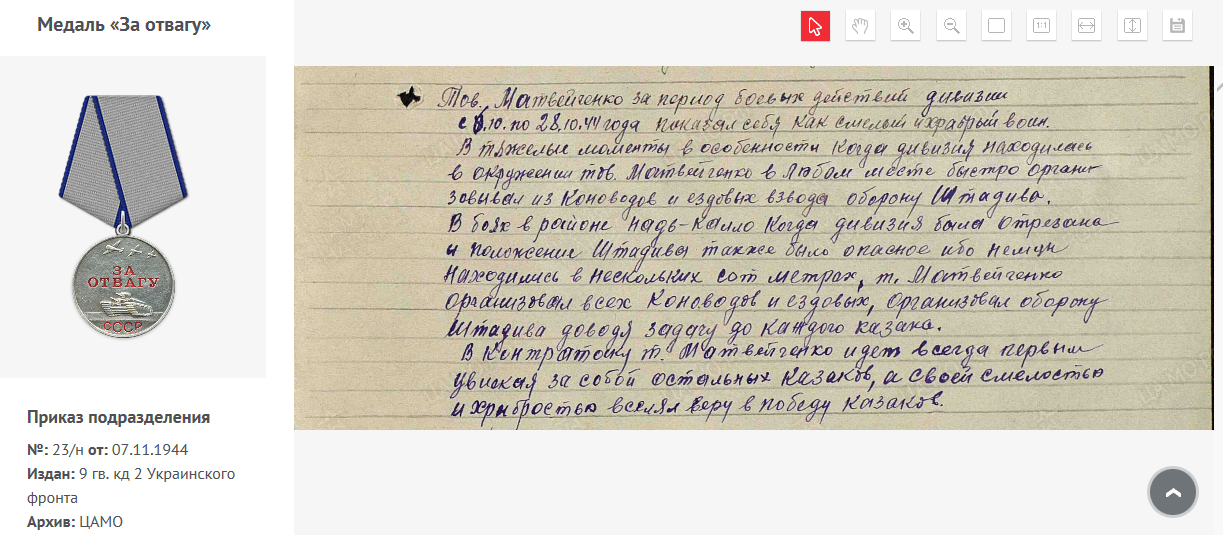 Медаль «За отвагу»
ЗА
ОТВАГУ
СССР
Приказ подразделения
№: 23/н от: 07.11.1944
Издан: 9 гв. кд 2 Украинского
фронта
Архив: ЦАМО
1:1
Тов. Матвейченко за период боевых действий дивизии
с 6.10. по 28.10.44 года показал себя как смелый и храбрый воин.
В тяжелые моменты в особенности когда дивизия находилась
в окружении тов. Матвейченко в любом месте быстро органи
зовывал из коноводов и ездовых взвода оборону Штадива.
В боях в районе Надь-Калло когда дивизия была отрезана
и положение Штадива также было опасное ибо немцы
находились в нескольких сот метрах, т. Матвейченко
организовал всех коноводов и ездовых, организовал оборону
Штадива доводя задачу до каждого казака.
В контратаку т. Матвейченко идет всегда первым
увлекая за собой остальных казаков, а своей смелостью
и храбростью вселял веру в победу казаков.